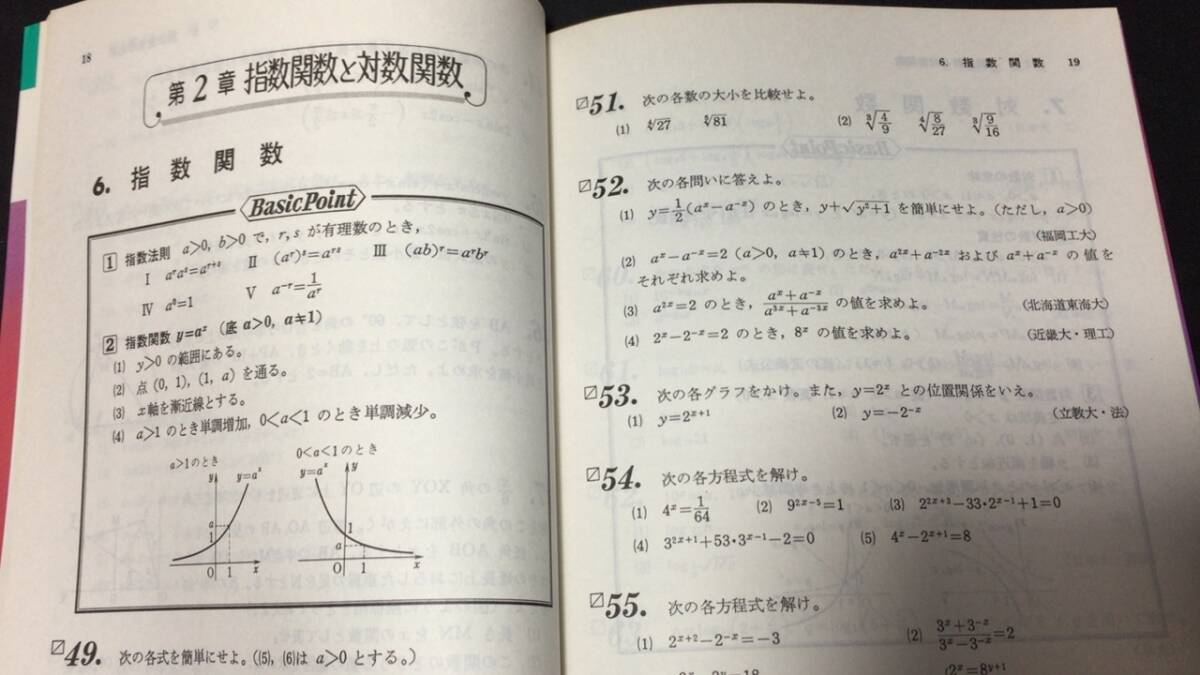 18
第2章 指数関数と対数関数
6. 指数関数
BasicPoint
1 指数法則 a>0, b>0 で, r, s が有理数のとき,
Ⅰ aʳaˢ=aʳ⁺ˢ Ⅱ (aʳ)ˢ=aʳˢ Ⅲ (ab)ʳ=aʳbʳ
Ⅳ a⁰=1 Ⅴ a⁻ʳ=1/aʳ
2 指数関数 y=aˣ (底 a>0, a≠1)
(1) y>0 の範囲にある。
(2) 点(0, 1), (1, a) を通る。
(3) x軸を漸近線とする。
(4) a>1 のとき単調増加, 0<a<1 のとき単調減少。
a>1のとき
y y=aˣ
a
1
O 1 x
0<a<1 のとき
y=aˣ y
1
a
O 1 x
49. 次の各式を簡単にせよ。((5), (6)は a>0 とする。)
6. 指数関数 19
51. 次の各数の大小を比較せよ。
(1) ⁴√27 ⁵√81 (2) ³√(4/9) ⁴√(8/27) ³√(9/16)
52. 次の各問いに答えよ。
(1) y=1/2(aˣ-a⁻ˣ) のとき, y+√(y²+1) を簡単にせよ。(ただし, a>0)
(福岡工大)
(2) aˣ-a⁻ˣ=2 (a>0, a≠1) のとき, a²ˣ+a⁻²ˣ および aˣ+a⁻ˣ の値を
それぞれ求めよ。
(3) a²ˣ=2 のとき, (aˣ+a⁻ˣ)/(a³ˣ+a⁻³ˣ) の値を求めよ。 (北海道東海大)
(4) 2ˣ-2⁻ˣ=2 のとき, 8ˣ の値を求めよ。 (近畿大・理工)
53. 次の各グラフをかけ。また, y=2ˣ との位置関係をいえ。
(1) y=2ˣ⁺¹ (2) y=-2⁻ˣ (立教大・法)
54. 次の各方程式を解け。
(1) 4ˣ=1/64 (2) 9²ˣ⁻⁵=1 (3) 2²ˣ⁺³-33・2ˣ⁻¹+1=0
(4) 3²ˣ⁺¹+53・3ˣ⁻¹-2=0 (5) 4ˣ-2ˣ⁺¹=8
55. 次の各方程式を解け。
(1) 2ˣ⁺²-2⁻ˣ=-3 (2) (3ˣ+3⁻ˣ)/(3ˣ-3⁻ˣ)=2
(2ˣ=8ʸ⁺¹